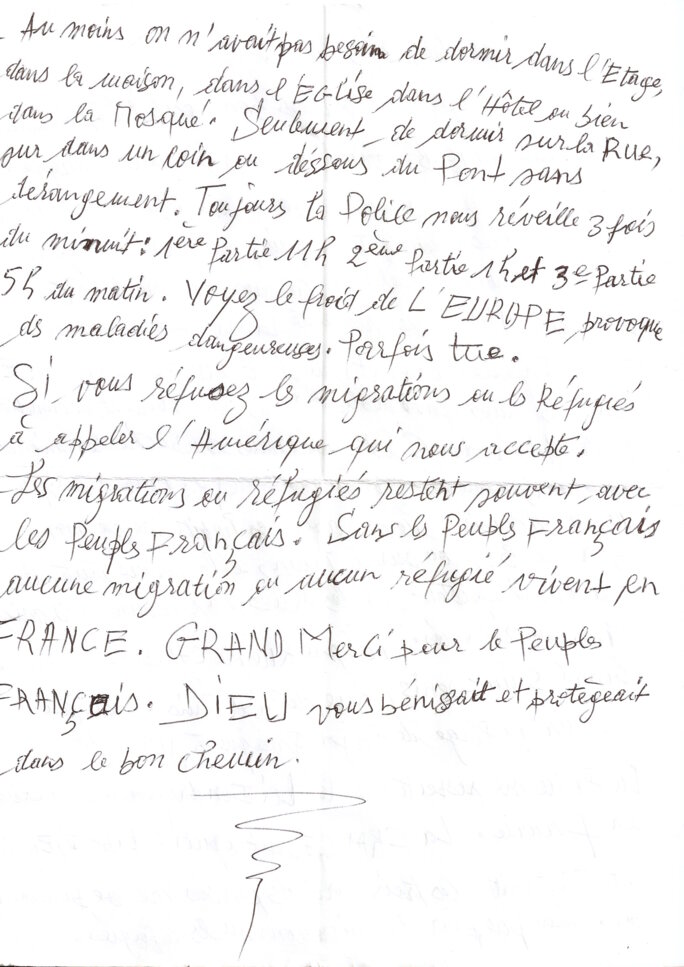 . Au moins on n'avait pas besoin de dormir dans l'Etage,
dans la maison, dans l'EGlise dans l'Hôtel ou bien
dans la Mosqué. Seulement de dormir sur la Rue,
sur dans un coin ou déssous du Pont sans
dérangement. Toujours la Police nous réveille 3 fois
du minuit : 1ère Partie 11h 2ème Partie 1h et 3e Partie
5h du matin. Voyez le froid de L'EUROPE provoque
ds maladiés dangeureuses. Parfois tue.
Si vous réfusez ls migrations ou ls Réfugiés
à appeler l'Amérique qui nous accepte.
Les migrations ou réfugiés restent souvent avec
les Peuples Français. Sans ls Peuples Français
aucune migration ou aucun réfugié vivent en
FRANCE. GRAND Merci pour le Peuples
FRANÇais. DIEU vous bénissait et protègeait
dans le bon chemin.